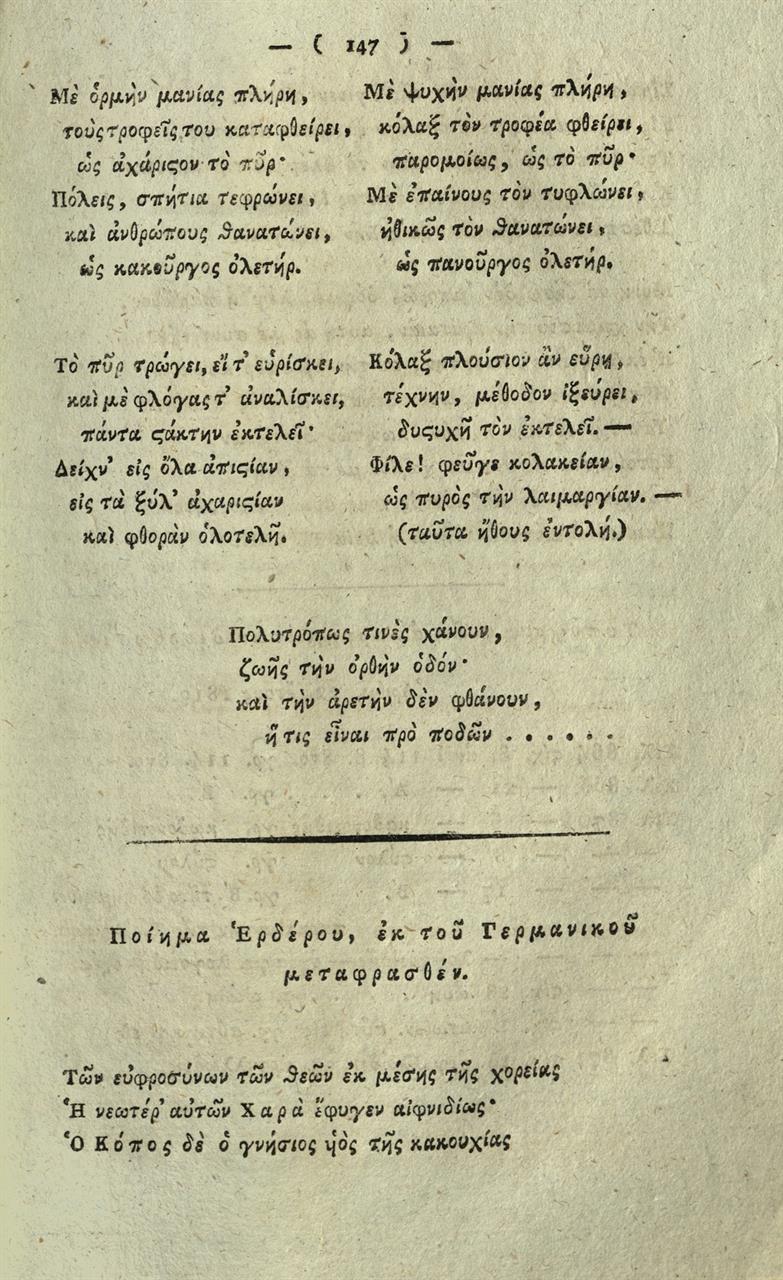 — ( 147 ) —
Μὲ ὁρμὴν μανίας πλήρη,
τοὺς τροφεῖς του καταφθείρει,
ὡς ἀχάριϛον τὸ πῦρ·
Πόλεις, σπήτια τεφρώνει,
καὶ ἀνθρώπους ϑανατώνει,
ὡς κακοῦργος ὀλετήρ.
Μὲ ψυχὴν μανίας πλήρη,
κόλαξ τὸν τροφέα φθείρει,
παρομοίως, ὡς τὸ πῦρ·
Μὲ ἐπαίνους τὸν τυφλώνει,
ἠθικῶς τὸν ϑανατώνει,
ὡς πανοῦργος ὀλετήρ.
Τὸ πῦρ τρώγει, εἴ τ' εὑρίσκει,
καὶ μὲ φλόγας τ' ἀναλίσκει,
πάντα ϛάκτην ἐκτελεῖ·
Δείχν' εἰς ὅλα ἀπιϛίαν,
εἰς τὰ ξύλ' ἀχαριϛίαν
καὶ φθορὰν ὁλοτελῆ.
Κόλαξ πλούσιον ἂν εὕρῃ,
τέχνην, μέθοδον ἰξεύρει,
δυϛυχῆ τὸν ἐκτελεῖ. —
Φίλε! φεῦγε κολακείαν,
ὡς πυρὸς τὴν λαιμαργίαν. —
(ταῦτα ἤθους ἐντολή.)
Πολυτρόπως τινὲς χάνουν,
ζωῆς τὴν ὀρθὴν ὁδόν·
καὶ τὴν ἀρετὴν δὲν φθάνουν,
ἥ τις εἶναι πρὸ ποδῶν . . . . . .
Ποίημα Ἑρδέρου, ἐκ τοῦ Γερμανικοῦ
μεταφρασθέν.
Τῶν εὐφροσύνων τῶν ϑεῶν ἐκ μέσης τῆς χορείας
Ἡ νεωτέρ' αὐτῶν Χαρὰ ἔφυγεν αἰφνιδίως·
Ὁ Κόπος δὲ ὁ γνήσιος ὑὸς τῆς κακουχίας